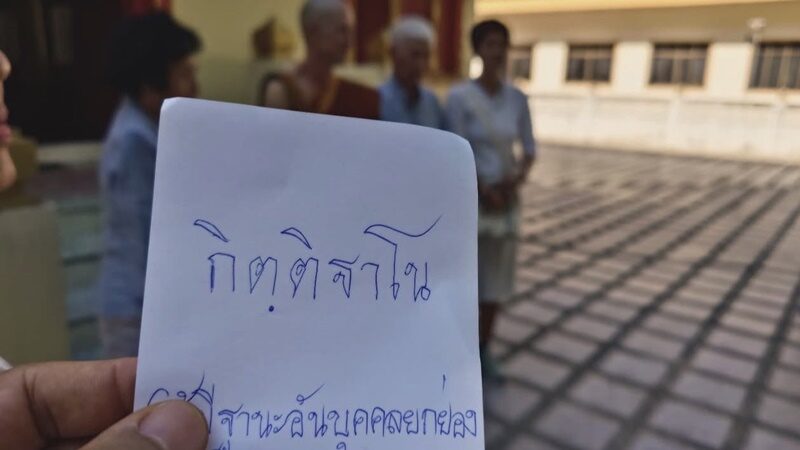 กิตฺติฐาโน
ฐานะอันบุคคลยกย่อง